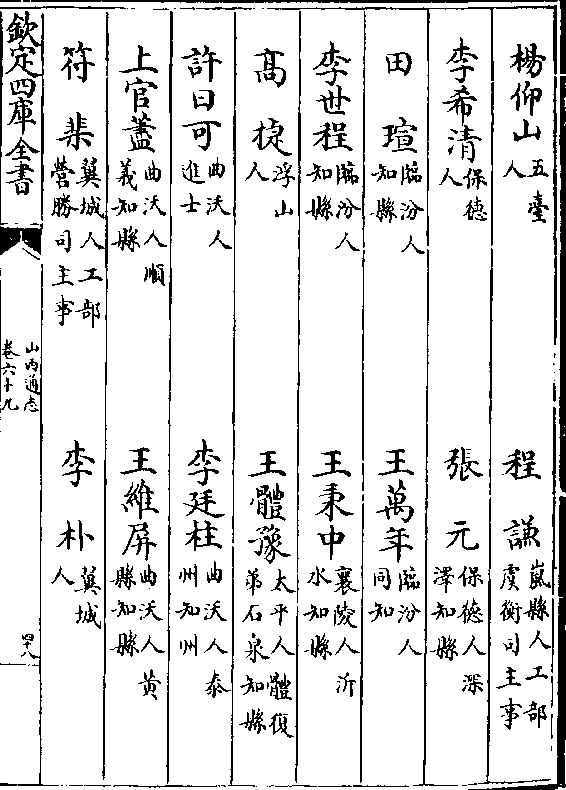 楊仰山五臺人 程謙嵐縣人工部虞衡司主事
李希清保德人 張元保德人深澤知縣
田瑄臨汾人知縣 王萬年臨汾人同知
李世程臨汾人知縣 王秉中襄陵人沂水知縣
高捷浮山人 王體豫太平人體復弟石泉知縣
許日可曲沃人進士 李廷柱曲沃人泰州知州
上官藎曲沃人順義知縣 王維屏曲沃人黃縣知縣
符棐翼城人工部營膳司主事 李朴翼城人
欽定四庫全書 山西通志卷六十九 四十八